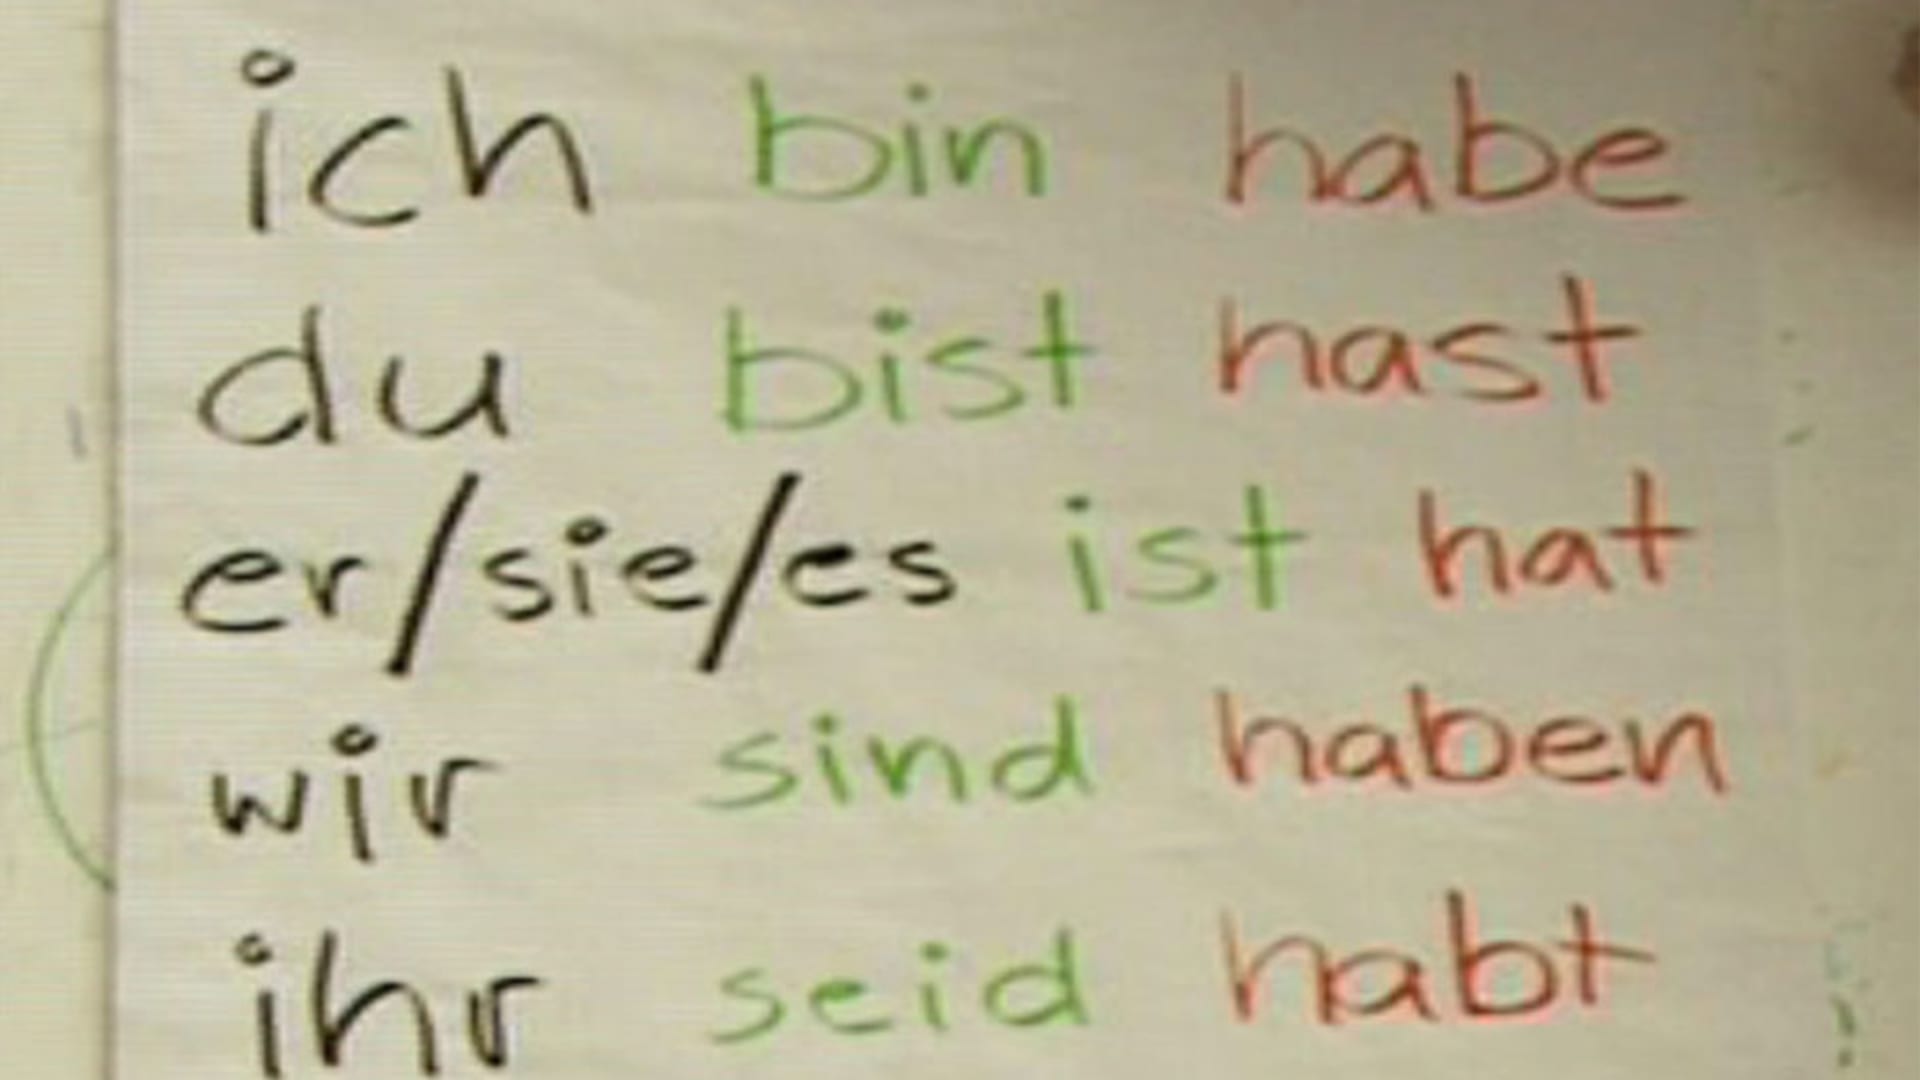 ich bin habe
du bist hast
er/sie/es ist hat
wir sind haben
ihr seid habt